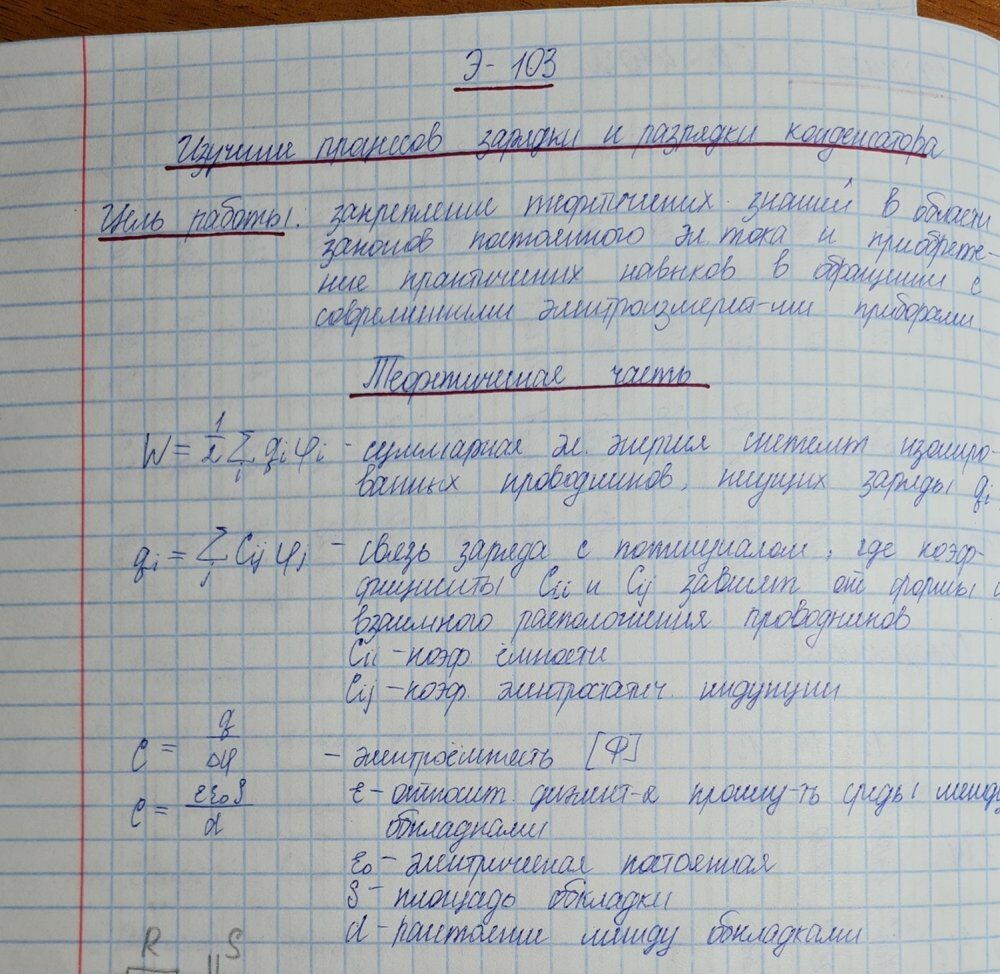 Э-103
Изучение процессов зарядки и разрядки конденсатора
Цель работы: закрепление теоретических знаний в области
законов постоянного эл. тока и приобрете-
ние практических навыков в обращении с
современными электроизмерит-ми приборами.
Теоретическая часть
W = 1/2 ∑i qi φi - суммарная эл. энергия систем изолиро-
ванных проводников, несущих заряды qi
qi = ∑j Cij φj - связь заряда с потенциалом, где коэф-
фициенты Cii и Cij зависят от формы и
взаимного расположения проводников
Cii - коэф. ёмкости
Cij - коэф. электростатич. индукции
C = q/Δφ - электроёмкость [Ф]
C = εε0S/d ε - относит. диэлект-я прониц-ть среды между
обкладками
ε0 - электрическая постоянная
S - площадь обкладки
d - расстояние между обкладками
R S